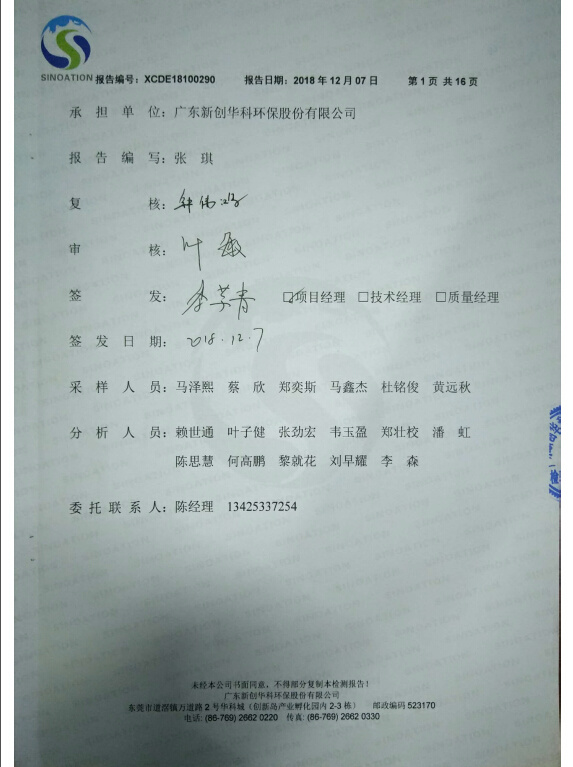 SINOATION 报告编号：XCDE18100290 报告日期：2018 年 12 月 07 日 第 1 页 共 16 页
承担单位：广东新创华科环保股份有限公司
报告编写：张 琪
复 核：
审 核：叶敏
签 发：李学青 ☑项目经理 □技术经理 □质量经理
签发日期：2018.12.7
采样人员：马泽熙 蔡 欣 郑奕斯 马鑫杰 杜铭俊 黄远秋
分析人员：赖世通 叶子健 张劲宏 韦玉盈 郑壮校 潘 虹
陈思慧 何高鹏 黎就花 刘早耀 李 森
委托联系人：陈经理 13425337254
未经本公司书面同意，不得部分复制本检测报告！
广东新创华科环保股份有限公司
东莞市道滘镇万道路 2 号华科城（创新岛产业孵化园内 2-3 栋） 邮政编码 523170
电话: (86-769) 2662 0220 传真: (86-769) 2662 0330